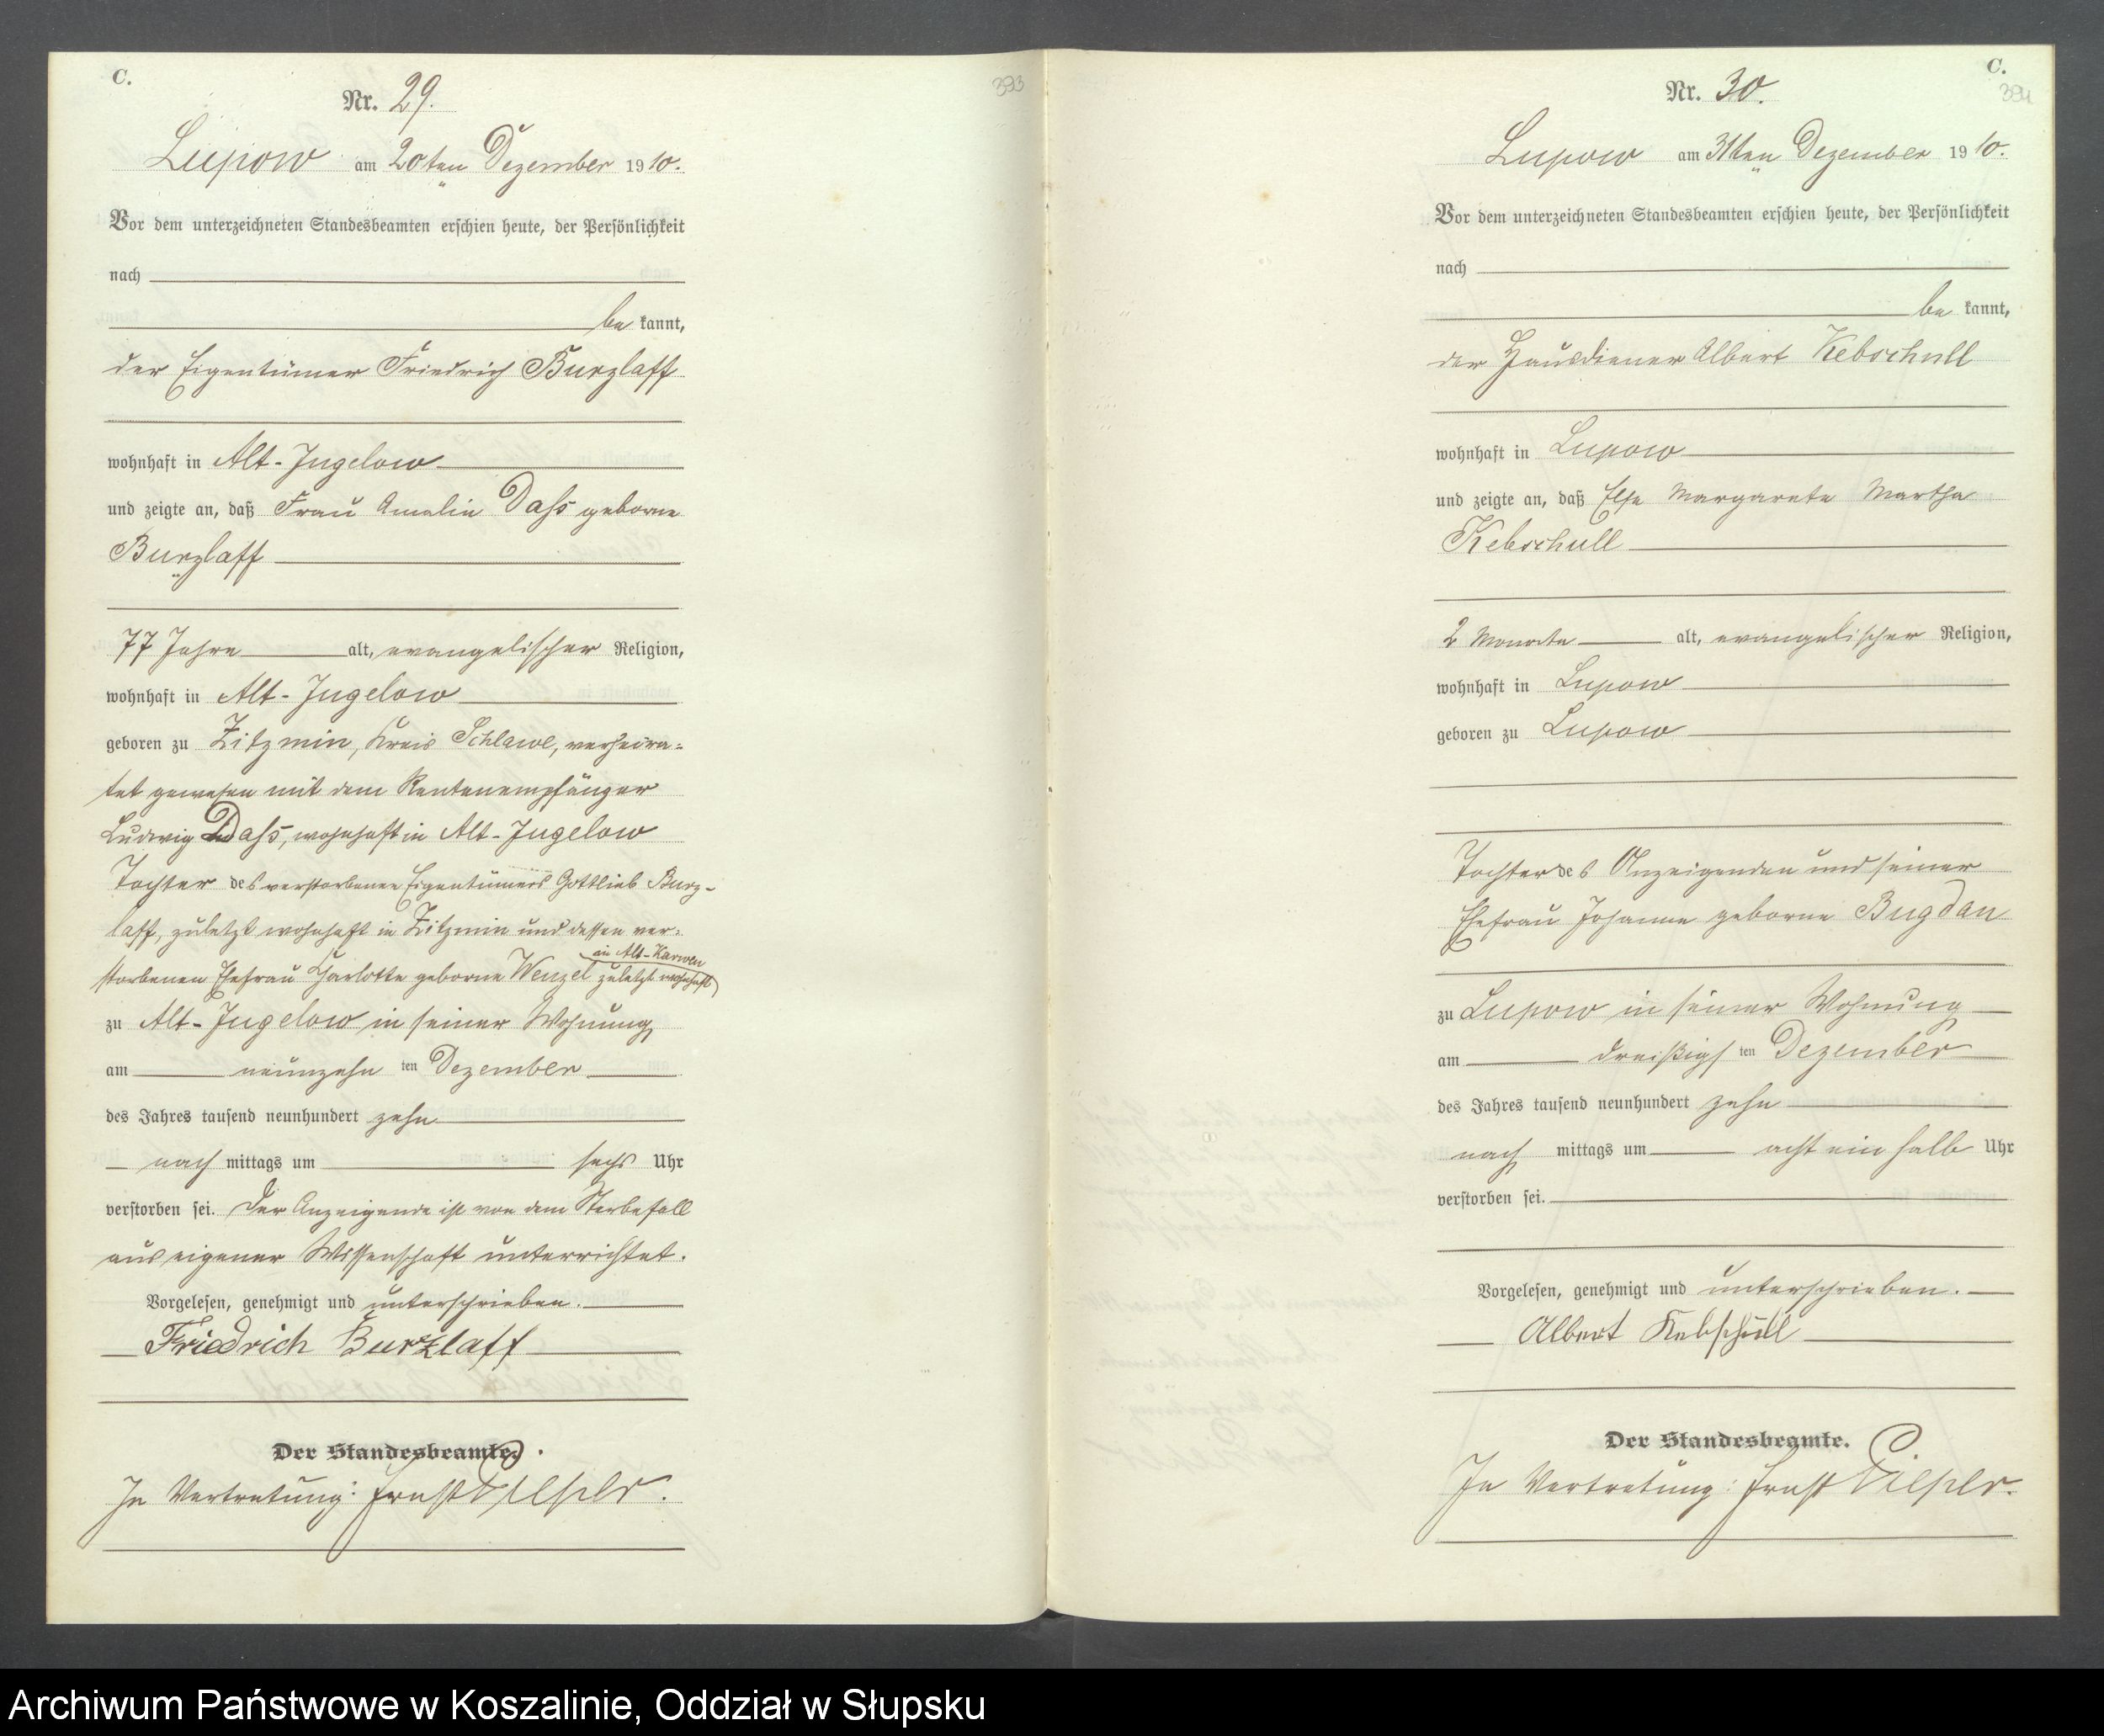 C.
393
Nr. 29.
Lupow am 20ten Dezember 1910.
Vor dem unterzeichneten Standesbeamten erschien heute, der Persönlichkeit
nach
be kannt,
der Eigentümer Friedrich Burzlaff
wohnhaft in Alt-Jugelow
und zeigte an, daß Frau Amalie Dahs geborne
Burzlaff
77 Jahre alt, evangelischer Religion,
wohnhaft in Alt-Jugelow
geboren zu Zitzmin, Kreis Schlawe, verheira-
tet gewesen mit dem Rentenempfänger
Ludwig Dahs, wohnhaft in Alt-Jugelow
Tochter des verstorbenen Eigentümers Gottlieb Burz-
laff, zuletzt wohnhaft in Zitzmin und dessen ver-
in Alt-Karwen
storbenen Ehefrau Charlotte geborne Wenzel zuletzt wohnhaft
zu Alt-Jugelow in seiner Wohnung
am neunzehn ten Dezember
des Jahres tausend neunhundert zehn
nach mittags um sechs Uhr
verstorben sei. Der Anzeigende ist von dem Sterbefall
aus eigener Wissenschaft unterrichtet.
Vorgelesen, genehmigt und unterschrieben.
Friedrich Burzlaff
Der Standesbeamte.
In Vertretung: Ernst Pieper.
C.
394
Nr. 30.
Lupow am 31ten Dezember 1910.
Vor dem unterzeichneten Standesbeamten erschien heute, der Persönlichkeit
nach
be kannt,
der Hausdiener Albert Kebschull
wohnhaft in Lupow
und zeigte an, daß Else Margarete Martha
Kebschull
2 Monate alt, evangelischer Religion,
wohnhaft in Lupow
geboren zu Lupow
Tochter des Anzeigenden und seiner
Ehefrau Johanne geborne Bugdan
zu Lupow in seiner Wohnung
am dreißigs ten Dezember
des Jahres tausend neunhundert zehn
nach mittags um acht ein halb Uhr
verstorben sei.
Vorgelesen, genehmigt und unterschrieben.
Albert Kebschull
Der Standesbeamte.
In Vertretung: Ernst Pieper.
Archiwum Państwowe w Koszalinie, Oddział w Słupsku